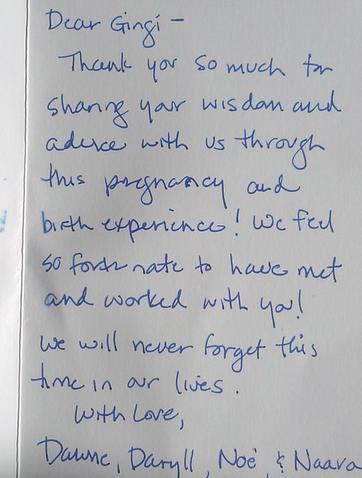 Dear Gingi -
Thank you so much for
sharing your wisdom and
advice with us through
this pregnancy and
birth experience! We feel
so fortunate to have met
and worked with you!
We will never forget this
time in our lives.
With Love,
Dawne, Daryll, Noé, & Naava